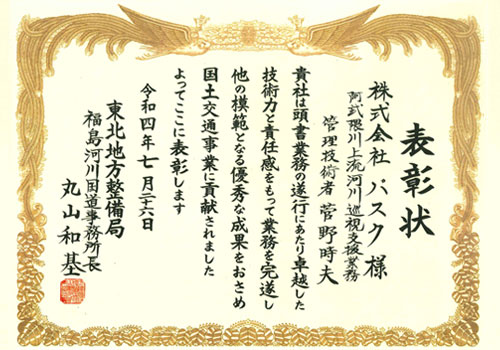 表彰状
株式会社 パスク 様
阿武隈川上流河川巡視支援業務
管理技術者 菅野時夫
貴社は頭書業務の遂行にあたり卓越した
技術力と責任感をもって業務を完遂し
他の模範となる優秀な成果をおさめ
国土交通事業に貢献されました
よってここに表彰します
令和四年七月二十六日
東北地方整備局
福島河川国道事務所長
丸山和基